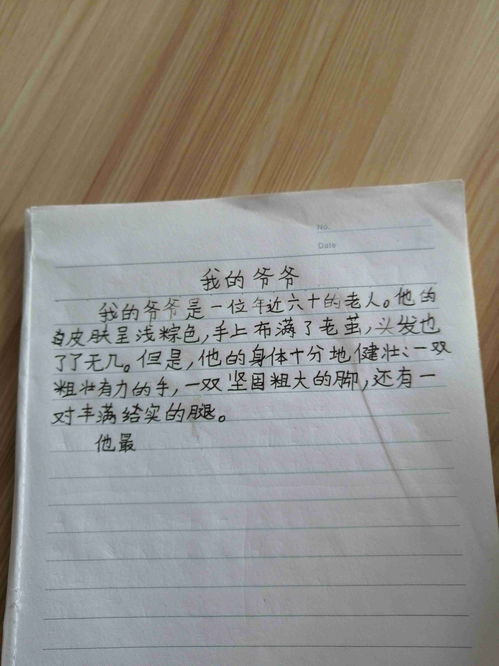 No.
Date
我的爷爷
我的爷爷是一位年近六十的老人。他的
皮肤呈浅粽色，手上布满了老茧，头发也
了了无几。但是，他的身体十分地健壮：一双
粗壮有力的手，一双坚固粗大的脚，还有一
对丰满结实的腿。
他最